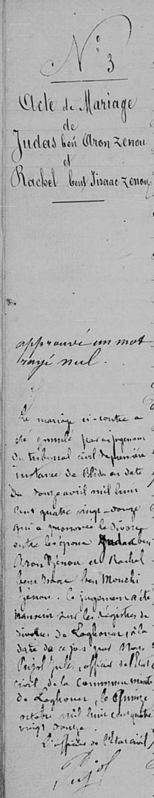 N° 3
Acte de Mariage
de
Judas ben Aron Zenou
et
Rachel bent Isaac Zenou
approuvé un mot
rayé nul.
Le mariage ci-contre a
été annulé par jugement
du tribunal civil de première
instance de Blida en date
du douze avril mil huit
cent quatre vingt-douze
qui a prononcé le divorce
entre les époux Judas ben
Aron Zenou et Rachel
bent Isaac ben Mouchi
Zenou. Ce jugement a été
transcrit sur les registres de
divorce de Laghouat, à la
date de ce jour par Nous
Pujol Jules, officier de l'état
civil de la Commune mixte
de Laghouat, le quinze
octobre mil huit cent quatre
vingt douze.
L'officier de l'état civil
Pujol